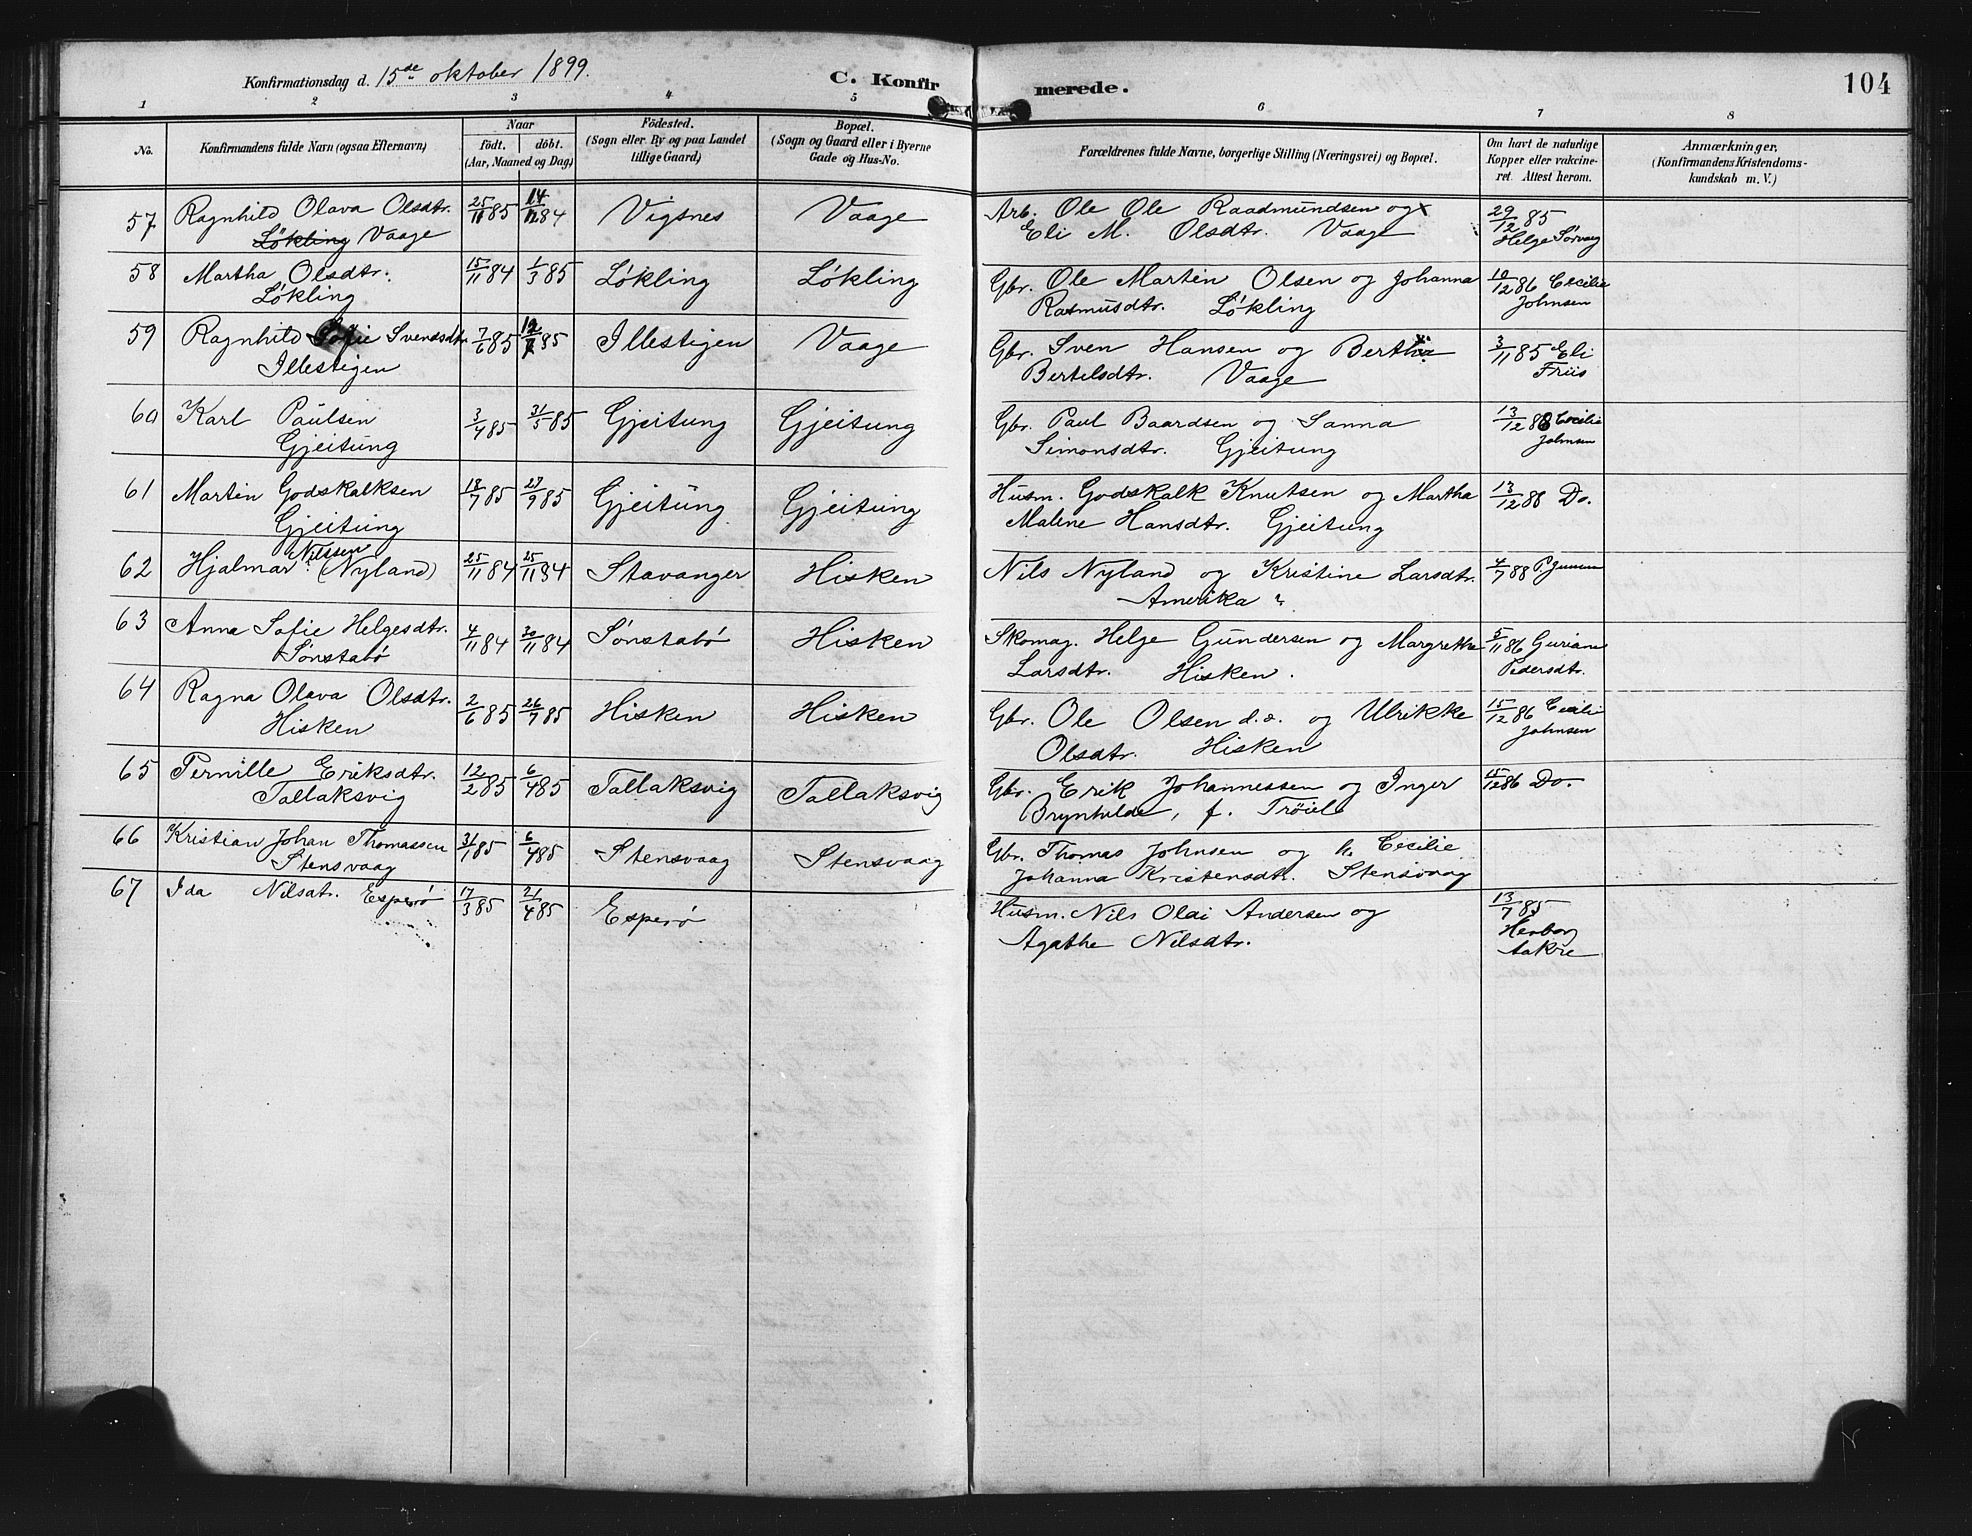 Konfirmationsdag d. 15de oktober 1899. C. Konfirmerede. 104
1 2 3 4 5 6 7 8
No. Konfirmandens fulde Navn (ogsaa Efternavn) Naar födt. döbt. (Aar, Maaned og Dag) Födested. (Sogn eller By og paa Landet tillige Gaard) Bopæl. (Sogn og Gaard eller i Byerne Gade og Hus-No. Forældrenes fulde Navne, borgerlige Stilling (Næringsvei) og Bopæl. Om havt de naturlige Kopper eller vakcineret. Attest herom. Anmærkninger. (Konfirmandens Kristendomskundskab m. V.)
57 Ragnhild Olava Olsdtr. 25/11 85 14/12 84 Vigsnes Vaage Arb. Ole Ole Raadmundsen og 29/12 85
Løkling Vaage Eli M. Olsdtr. Vaage Helge Sørvaag
58 Martha Olsdtr. 15/11 84 1/3 85 Løkling Løkling Gbr. Ole Martin Olsen og Johanna 10/12 86 Cecilie
Løkling Rasmusdtr. Løkling Johnsen
59 Ragnhild Sofie Svensdtr. 7/6 85 85 Illestigen Vaage Gbr. Sven Hansen og Bertha 3/11 85 Eli
Illestigen Bertelsdtr. Vaage Friis
60 Karl Paulsen 3/4 85 31/5 85 Gjeitung Gjeitung Gbr. Paul Baardsen og Sanna 13/12 88 Cecilie
Gjeitung Simonsdtr. Gjeitung Johnsen
61 Martin Godskalksen 18/7 85 27/9 85 Gjeitung Gjeitung Husm. Godskalk Knutsen og Martha 13/12 88 Do.
Gjeitung Malene Hansdtr. Gjeitung
Nilssen
62 Hjalmar (Nyland) 25/11 84 25/11 84 Stavanger Hisken Nils Nyland og Kristine Larsdtr. 4/7 88
Amerika ?
63 Anna Sofie Helgesdtr. 4/11 84 30/11 84 Sønstabø Hisken Skomag. Helge Gundersen og Margrethe 5/11 86 Guriane
Sønstabø Larsdtr. Hisken. Pedersdtr.
64 Ragna Olava Olsdtr. 2/6 85 26/7 85 Hisken Hisken Gbr. Ole Olsen d.æ. og Ulrikke 15/12 86 Cecilie
Hisken Olsdtr. Hisken Johnsen
65 Pernille Eriksdtr. 12/2 85 6/4 85 Tallaksvig Tallaksvig Gbr. Erik Johannessen og Inger 15/12 86 Do.
Tallaksvig Brynhilde, f. Trøiel
66 Kristian Johan Thomassen 31/1 85 6/4 85 Stensvaag Stensvaag Gbr. Thomas Johnsen og h. Cecilie
Stensvaag Johanna Kristensdtr. Stensvaag
67 Ida Nilsdtr. Esperø 17/3 85 21/4 85 Esperø Husm. Nils Olai Andersen og 13/7 85
Agathe Nilsdtr. Herborg
Aakre